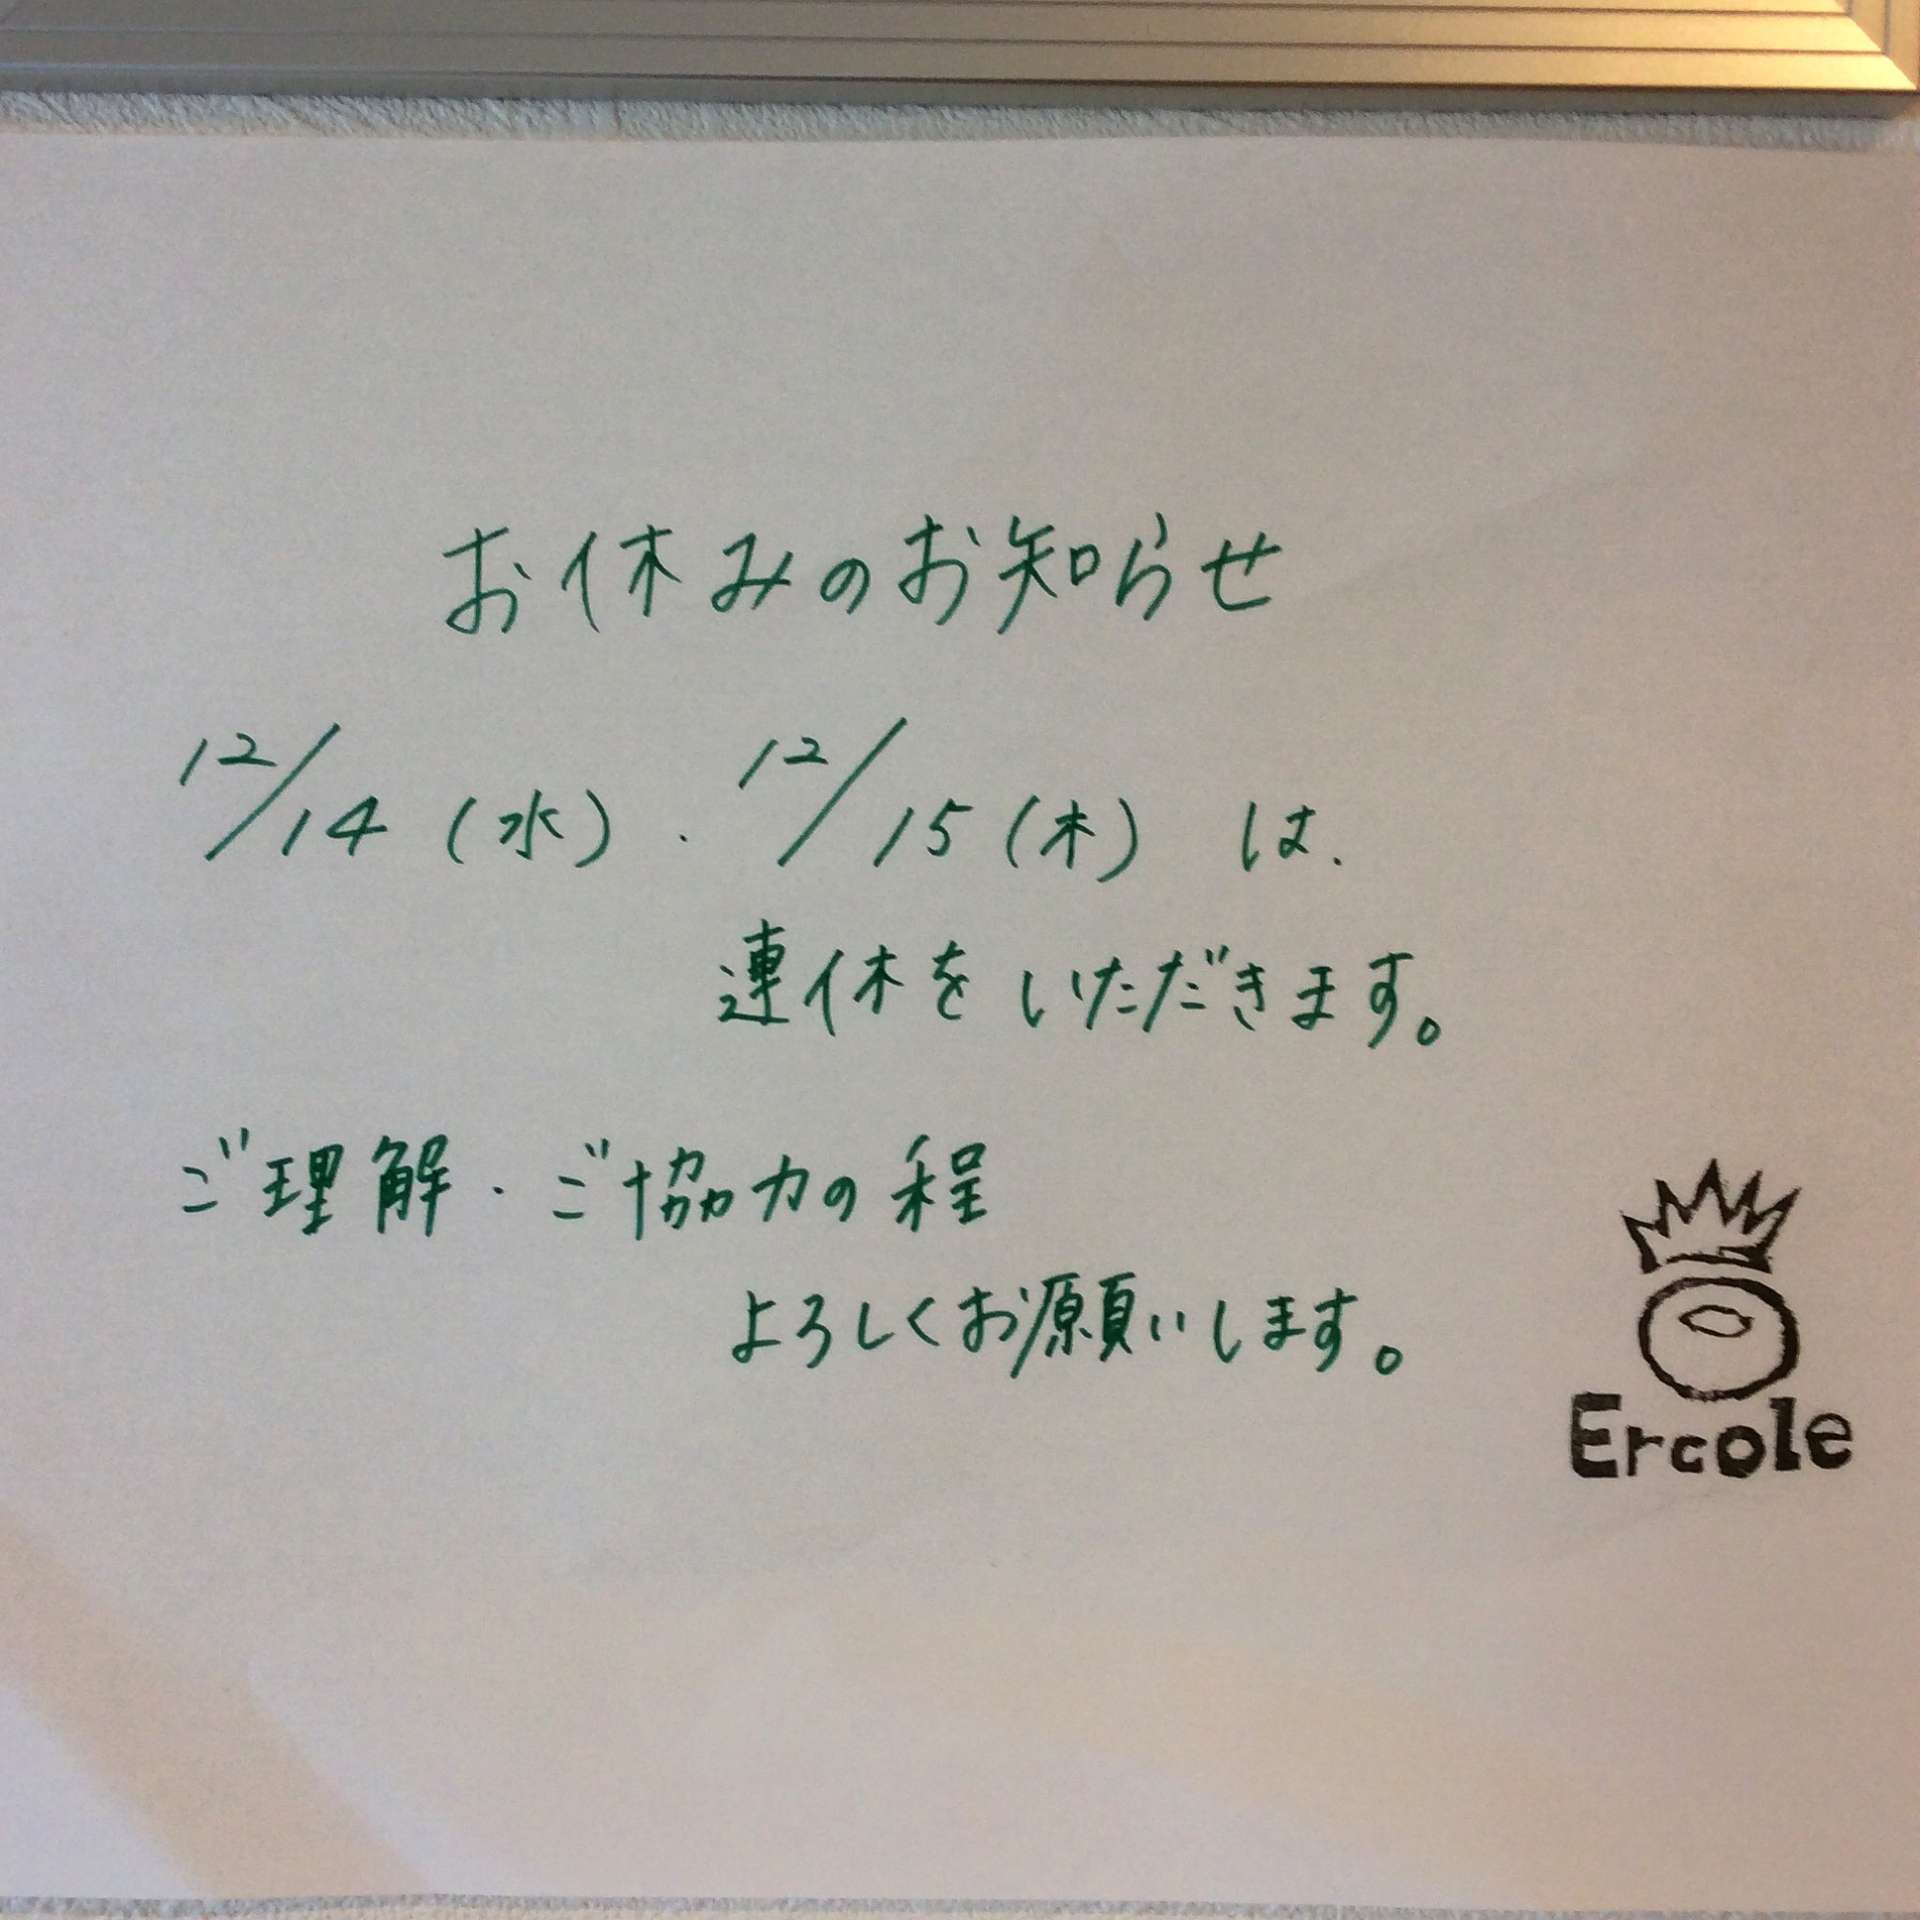 お休みのお知らせ
12/14(水)・12/15(木) は、
連休をいただきます。
ご理解・ご協力の程
よろしくお願いします。
Ercole